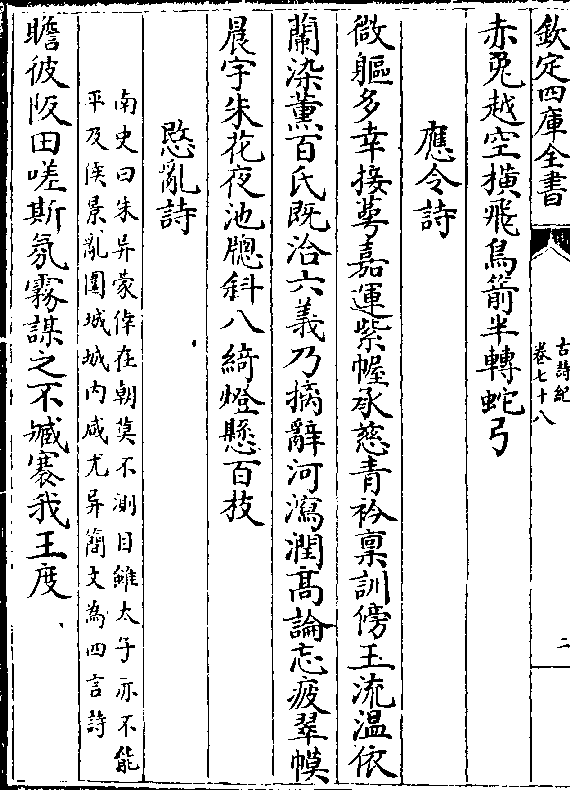 欽定四庫全書
古詩紀
卷七十八
二
赤兎越空橫飛鳥箭半轉蛇弓
應令詩
微軀多幸接萼嘉運紫幄承慈青衿禀訓傍玉流温依
蘭染薫百氏既洽六義乃摛辭河瀉潤髙論忘疲翠幙
晨宇朱花夜池牎斜八綺燈懸百枝
愍亂詩
南史曰朱异蒙倖在朝莫不測目雖太子亦不能
平及侯景亂圍城城内咸尤异簡文為四言詩
瞻彼阪田嗟斯氛霧謀之不臧褰我王度